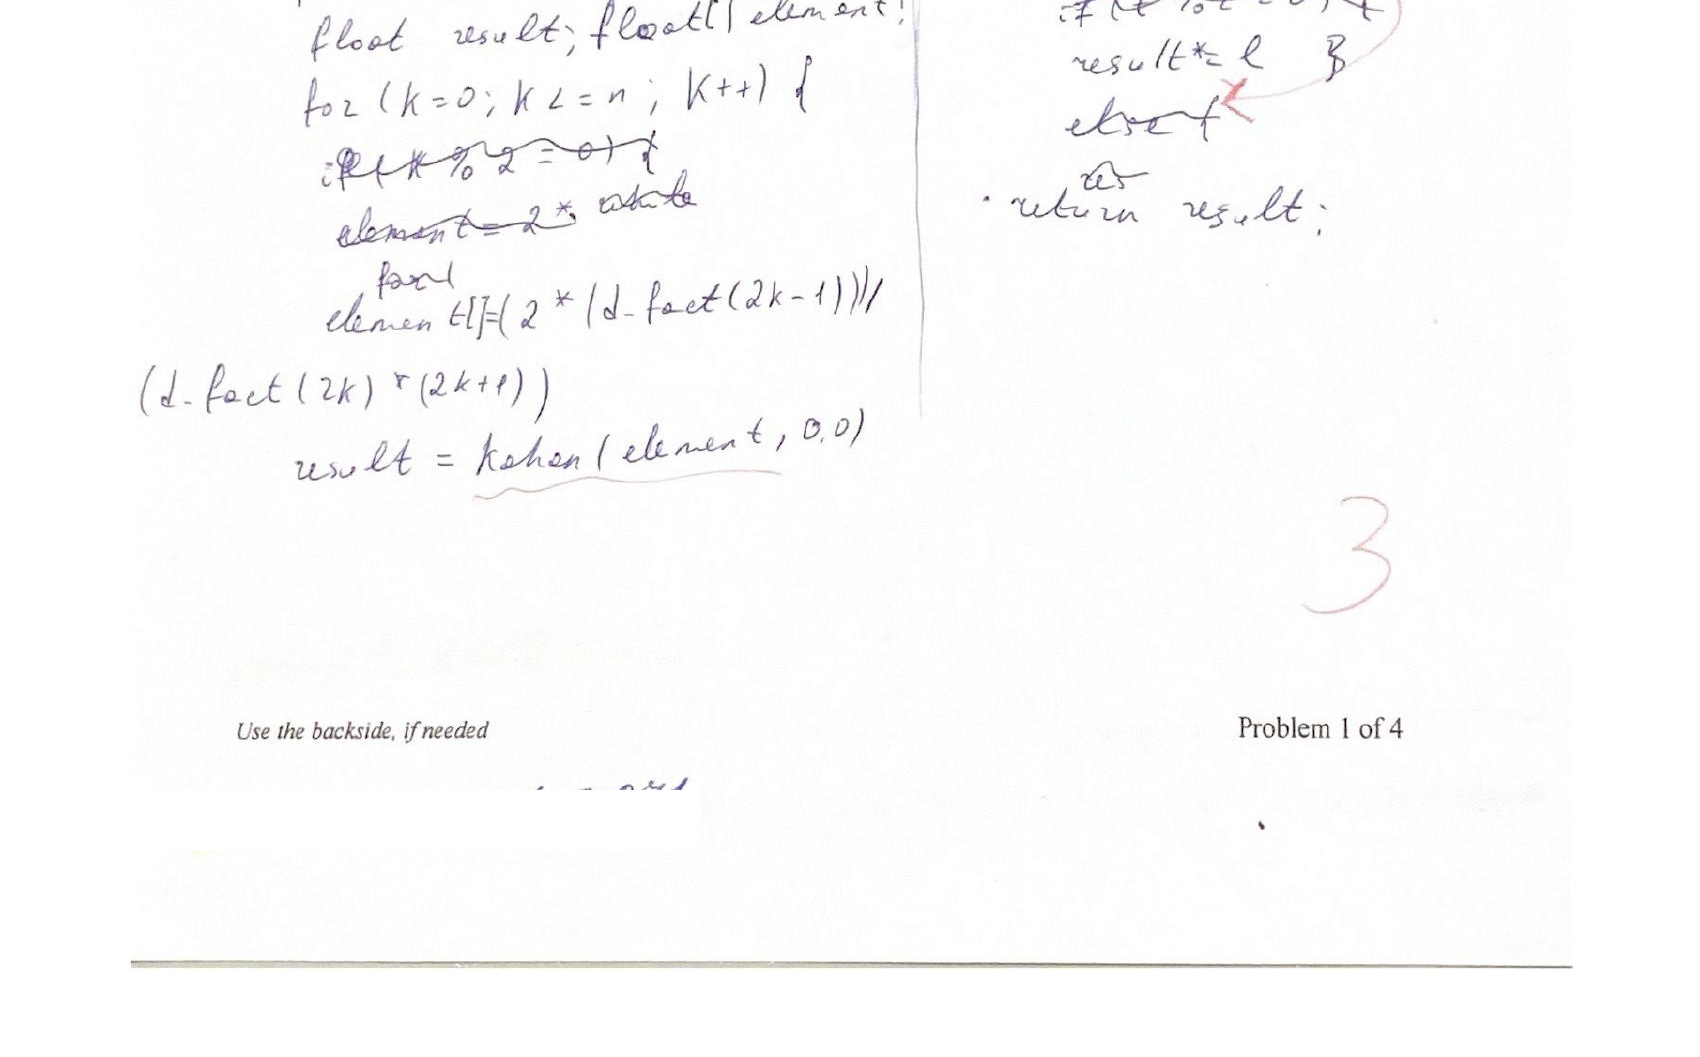 float result; float[] element;
for (k=0; k <= n; k++) {
if (k % 2 = 0) {
element = 2 *
element[]=(2 * (d_fact(2k-1)))/
(d_fact(2k) * (2k+1))
result = kahan(element, 0,0)
result *= l }
else {
res
return result;
3
Use the backside, if needed
Problem 1 of 4